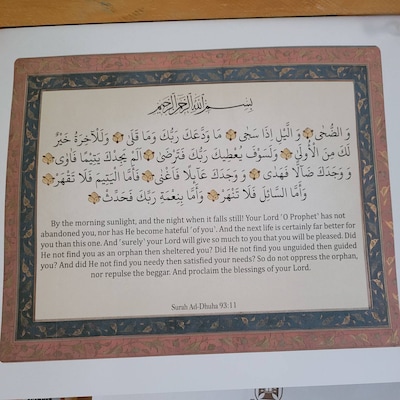 بِسْمِ اللَّهِ الرَّحْمَٰنِ الرَّحِيمِ
وَ الضُّحٰى وَ الَّيْلِ اِذَا سَجٰى مَا وَدَّعَكَ رَبُّكَ وَمَا قَلٰى وَلَلْاٰخِرَةُ خَيْرٌ
لَّكَ مِنَ الْاُولٰى وَلَسَوْفَ يُعْطِيكَ رَبُّكَ فَتَرْضٰى اَلَمْ يَجِدْكَ يَتِيْمًا فَاٰوٰى
وَ وَجَدَكَ ضَآلًّا فَهَدٰى وَ وَجَدَكَ عَآىِٕلًا فَاَغْنٰى فَاَمَّا الْيَتِيْمَ فَلَا تَقْهَرْ
وَاَمَّا السَّآىِٕلَ فَلَا تَنْهَرْ وَاَمَّا بِنِعْمَةِ رَبِّكَ فَحَدِّثْ
By the morning sunlight, and the night when it falls still! Your Lord 'O Prophet' has not
abandoned you, nor has He become hateful 'of you'. And the next life is certainly far better for
you than this one. And 'surely' your Lord will give so much to you that you will be pleased. Did
He not find you as an orphan then sheltered you? Did He not find you unguided then guided
you? And did He not find you needy then satisfied your needs? So do not oppress the orphan,
nor repulse the beggar. And proclaim the blessings of your Lord.
Surah Ad-Dhuha 93:11